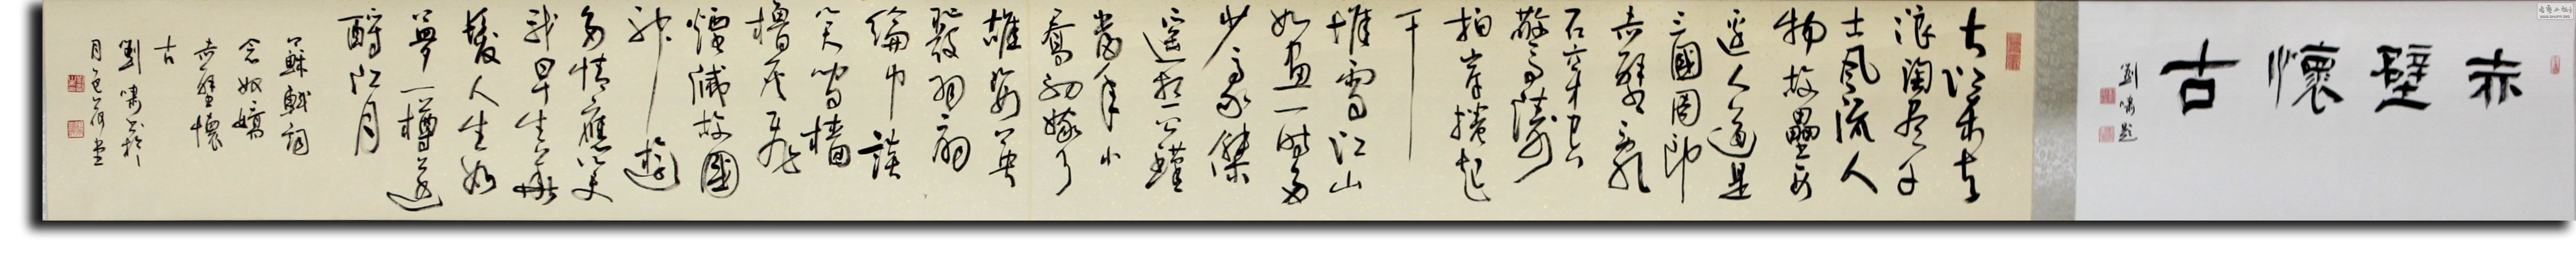 赤壁懷古
劉嘯題
大江東去
浪淘盡千
古風流人
物故壘西
邊人道是
三國周郎
赤壁亂
石穿空
驚濤
拍岸捲起
千
堆雪江山
如畫一時多
少豪傑
遙想公瑾
當年小
喬初嫁了
雄姿英
發羽扇
綸巾談
笑間檣
櫓灰飛
煙滅故國
神遊
多情應笑
我早生華
髮人生如
夢一樽還
酹江月
蘇軾詞
念奴嬌
赤壁懷
古
劉嘯書於
月色荷堂